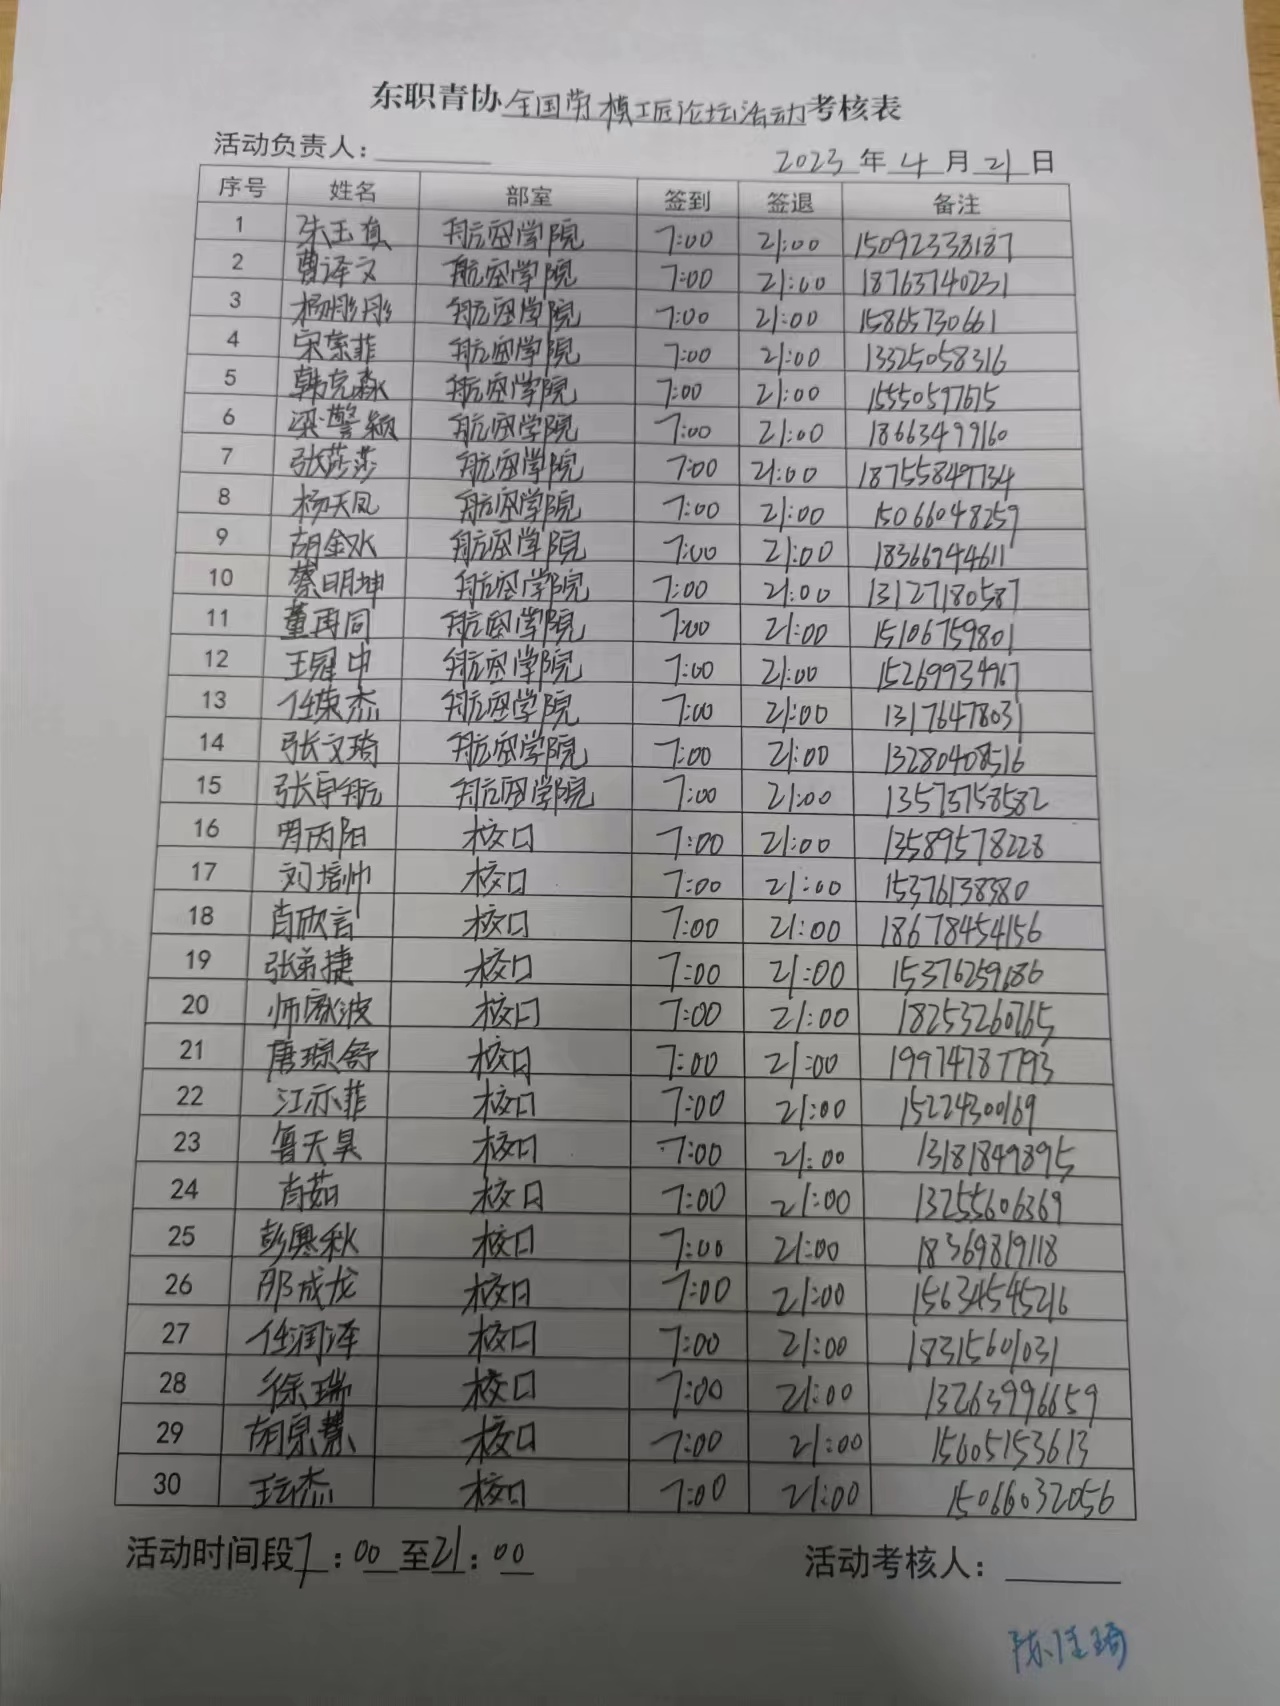 东职青协全国劳模工匠论坛活动考核表
活动负责人：
2023年4月21日
序号 姓名 部室 签到 签退 备注
1 朱玉真 航空学院 7:00 21:00 15092338187
2 曹译文 航空学院 7:00 21:00 18763740231
3 杨彤彤 航空学院 7:00 21:00 15865730661
4 宋萦菲 航空学院 7:00 21:00 13325058316
5 韩克淼 航空学院 7:00 21:00 15550597675
6 梁警颖 航空学院 7:00 21:00 18663499160
7 张莎莎 航空学院 7:00 21:00 18755849734
8 杨天凤 航空学院 7:00 21:00 15066048259
9 胡金水 航空学院 7:00 21:00 18366944611
10 蔡明坤 航空学院 7:00 21:00 13127180587
11 董再同 航空学院 7:00 21:00 15106759801
12 王冠中 航空学院 7:00 21:00 15269934967
13 任荣杰 航空学院 7:00 21:00 13176478031
14 张文琦 航空学院 7:00 21:00 13280408516
15 张宇航 航空学院 7:00 21:00 13573758582
16 丙阳 校口 7:00 21:00 13589578228
17 刘培帅 校口 7:00 21:00 15376138380
18 肖欣言 校口 7:00 21:00 18678454156
19 张弟捷 校口 7:00 21:00 15376259186
20 师家波 校口 7:00 21:00 18253260765
21 唐琼舒 校口 7:00 21:00 19974787793
22 江亦菲 校口 7:00 21:00 15224300169
23 鲁天昊 校口 7:00 21:00 13181849895
24 肖茹 校口 7:00 21:00 13255606369
25 彭寒秋 校口 7:00 21:00 18369819118
26 邢成龙 校口 7:00 21:00 15634545216
27 任润泽 校口 7:00 21:00 18315601031
28 徐瑞 校口 7:00 21:00 13263996659
29 胡宗慧 校口 7:00 21:00 15605153613
30 王云杰 校口 7:00 21:00 15066032056
活动时间段7:00至21:00
活动考核人：
陈佳琦